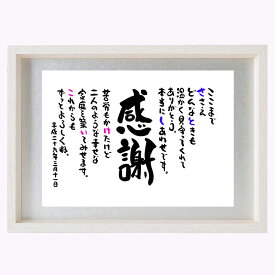 ここまで
ささえ
どんなときも
温かく見守ってくれて
ありがとう。
本当にしあわせです。
感謝
苦労もかけたけど
二人のような幸せな
家庭を築いてみせます。
これからも
ずっとよろしくね。
平成二十九年三月十一日